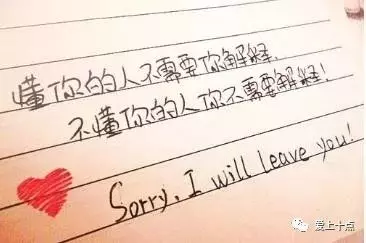 懂你的人不需要你解释,
不懂你的人你不需要解释!
Sorry, I will leave you!
爱上十点